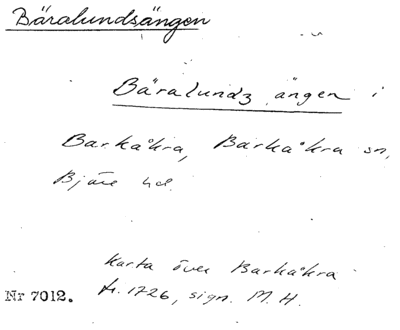 Bäralundsängen
Bäralundz ängen i
Barkåkra, Barkåkra sn,
Bjäre hd.
Karta över Barkåkra
fr. 1726, sign. M. H.
Nr 7012.